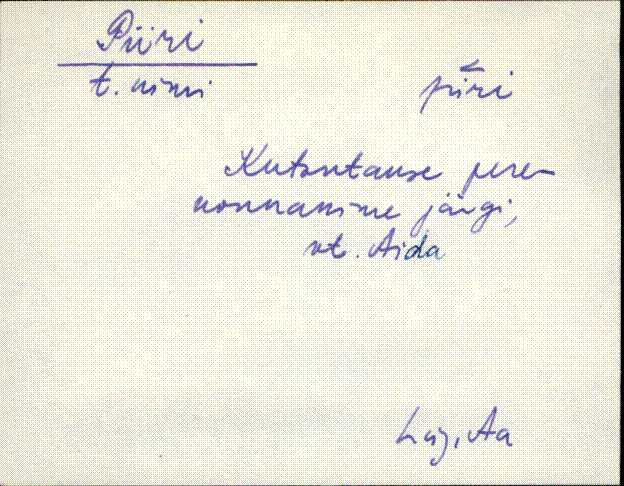 Piiri
t. nimi
pìiri
Kutsutakse pere-
konnanime järgi,
vt. Aida
Häj, Aa